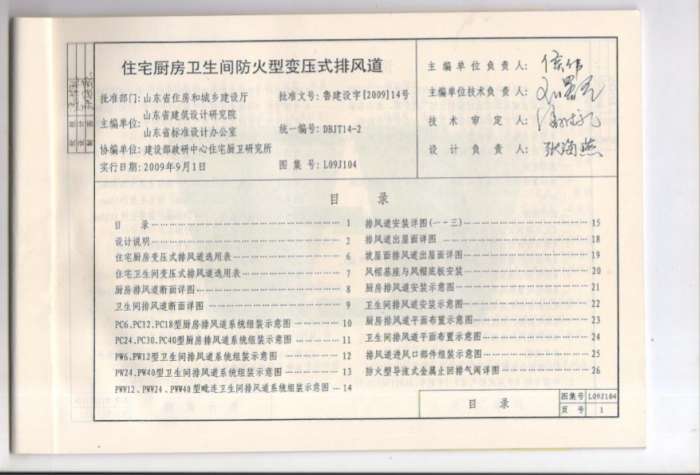 住宅厨房卫生间防火型变压式排风道
批准部门: 山东省住房和城乡建设厅 批准文号: 鲁建设字[2009]14号
主编单位: 山东省建筑设计研究院
山东省标准设计办公室
统一编号: DBJT14-2
协编单位: 建设部政研中心住宅厨卫研究所
实行日期: 2009年9月1日 图集号: L09J104
主编单位负责人:
主编单位技术负责人:
技术审定人:
设计负责人: 张海燕
目 录
目 录 1
设计说明 2
住宅厨房变压式排风道选用表 6
住宅卫生间变压式排风道选用表 7
厨房排风道断面详图 8
卫生间排风道断面详图 9
PC6.PC12.PC18型厨房排风道系统组装示意图 10
PC24.PC30.PC40型厨房排风道系统组装示意图 11
PW6.PW12型卫生间排风道系统组装示意图 12
PW24.PW40型卫生间排风道系统组装示意图 13
PWW12、PWW24、PWW40型毗连卫生间排风道系统组装示意图 14
排风道安装详图(一~三) 15
排风道出屋面详图 18
坡屋面排风道出屋面详图 19
风帽基座与风帽底板安装 20
厨房排风道安装示意图 21
卫生间排风道安装示意图 22
厨房排风道平面布置示意图 23
卫生间排风道平面布置示意图 24
排风道进风口部件组装示意图 25
防火型导流式金属止回排气阀详图 26
目 录
图集号 L09J104
页 号 1